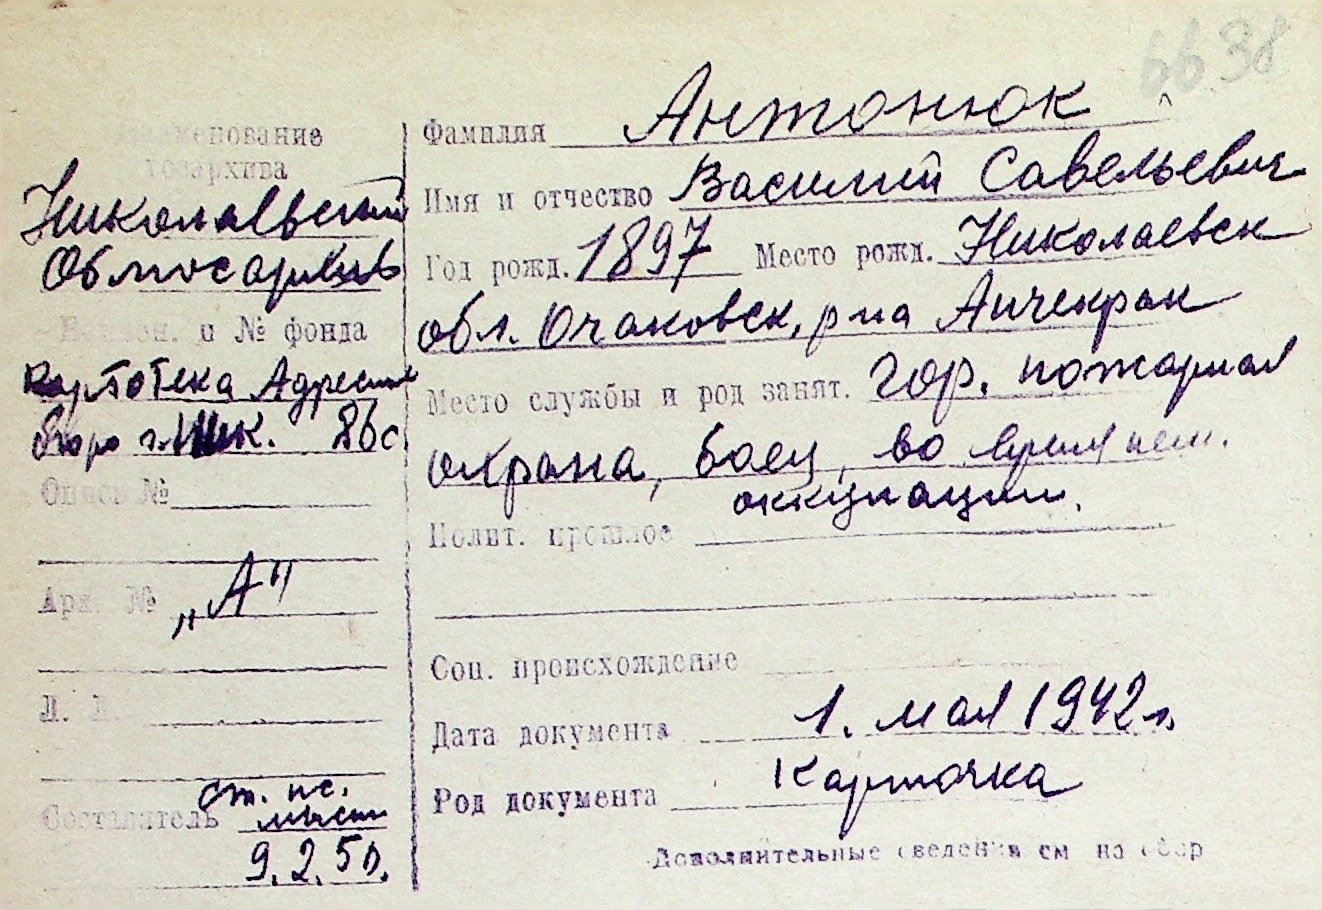 6638
Наименование
госархива
Николаевский
Облгосархив
Наимен. и № фонда
Картотека Адресного
бюро г. Ник. 86с
Опись №
Арх. №
„А"
Л. Л.
Составитель
ст. ис.
9.2.50.
Фамилия Антонюк
Имя и отчество Василий Савельевич
Год рожд. 1897 Место рожд. Николаевск
обл. Очаковск, р на Анчекрак
Место службы и род занят. гор. пожарная
охрана, боец, во время нем.
оккупации.
Полит. прошлое
Соц. происхождение
Дата документа 1. мая 1942 г.
Род документа Карточка
Дополнительные сведения см на обор